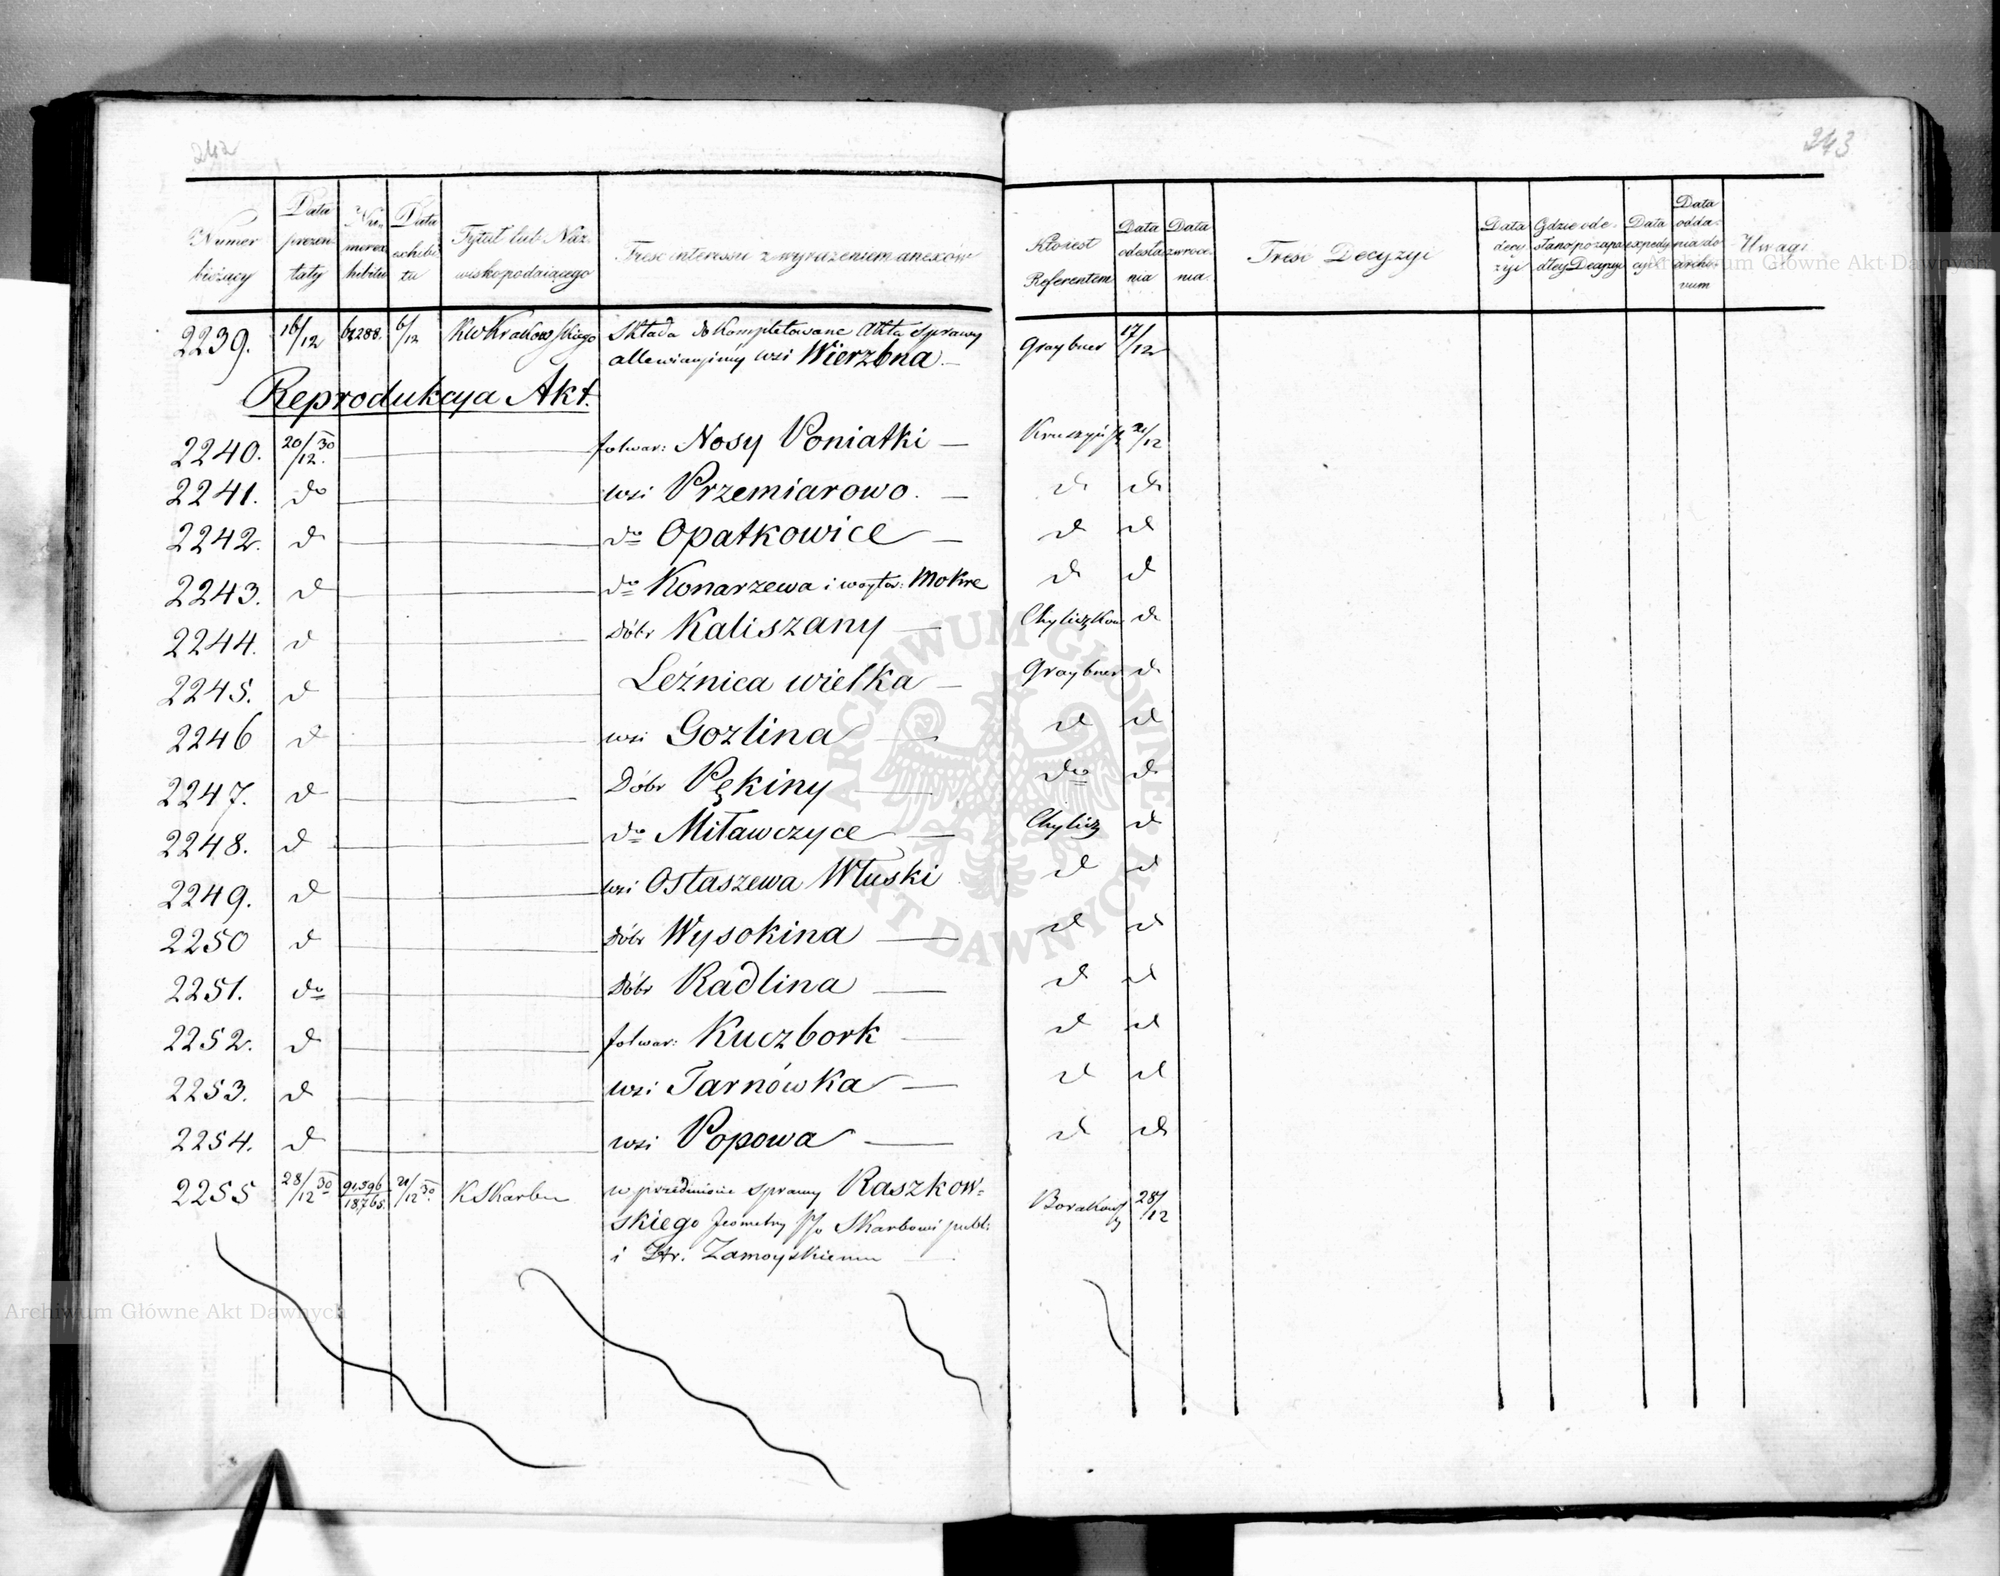 242
243
Numer bieżący
Data prezentaty
Numer exhibitu
Data exhibitu
Tytuł lub Nazwisko podaiącego
Treść interessu z wyrażeniem anexów
Kto iest Referentem
Data odesłania
Data zwrócenia
Treść Decyzyi
Data decyzyi
Gdzie odesłano po zapadłey Decyzyi
Data expedycyi
Data oddania do archivum
Uwagi
2239. 16/12 6/12 KW Krakowskiego Składa Akta sprawy Graybner 17/12
wsi Wierzbna
Reprodukcya Akt.
2240. 20/12 30 folwar: Nosy Poniatki — 21/12
2241. do wsi Przemiarowo. — d d
2242. d do Opatkowice — d d
2243. d do Konarzewa i woytos: Mokre d d
2244. d Dóbr Kaliszany — d
2245. d Leźnica wielka — Graybner d
2246 d wsi Gozlina — d d
2247. d Dóbr Pękiny — do d
2248. d do Miławczyce — Chylicz d
2249. d wsi Ostaszewa Włuski d d
2250 d Dóbr Wysokina — d d
2251. do Dóbr Radlina — d d
2252. d folwar: Kuczbork — d d
2253. d wsi Tarnówka — d d
2254. d wsi Popowa — d d
2255 28/12 30 91,596/18,765 21/12 30 K Skarbu w przedmiocie sprawy Raszkow= 28/12
skiego Jeometry p/o Skarbowi publ:
i Hr. Zamoyskiemu —
Archiwum Główne Akt Dawnych
ARCHIWUM GŁÓWNE AKT DAWNYCH
Archiwum Główne Akt Dawnych